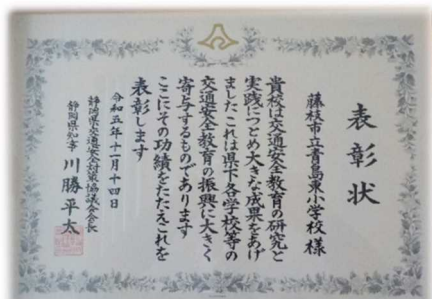 表彰状
藤枝市立青島東小学校様
貴校は交通安全教育の研究と
実践につとめ大きな成果をあげ
ましたこれは県下各学校等の
交通安全教育の振興に大きく
寄与するものであります
ここにその功績をたたえこれを
表彰します
令和五年十月十四日
静岡県交通安全対策協議会会長
静岡県知事 川勝平太